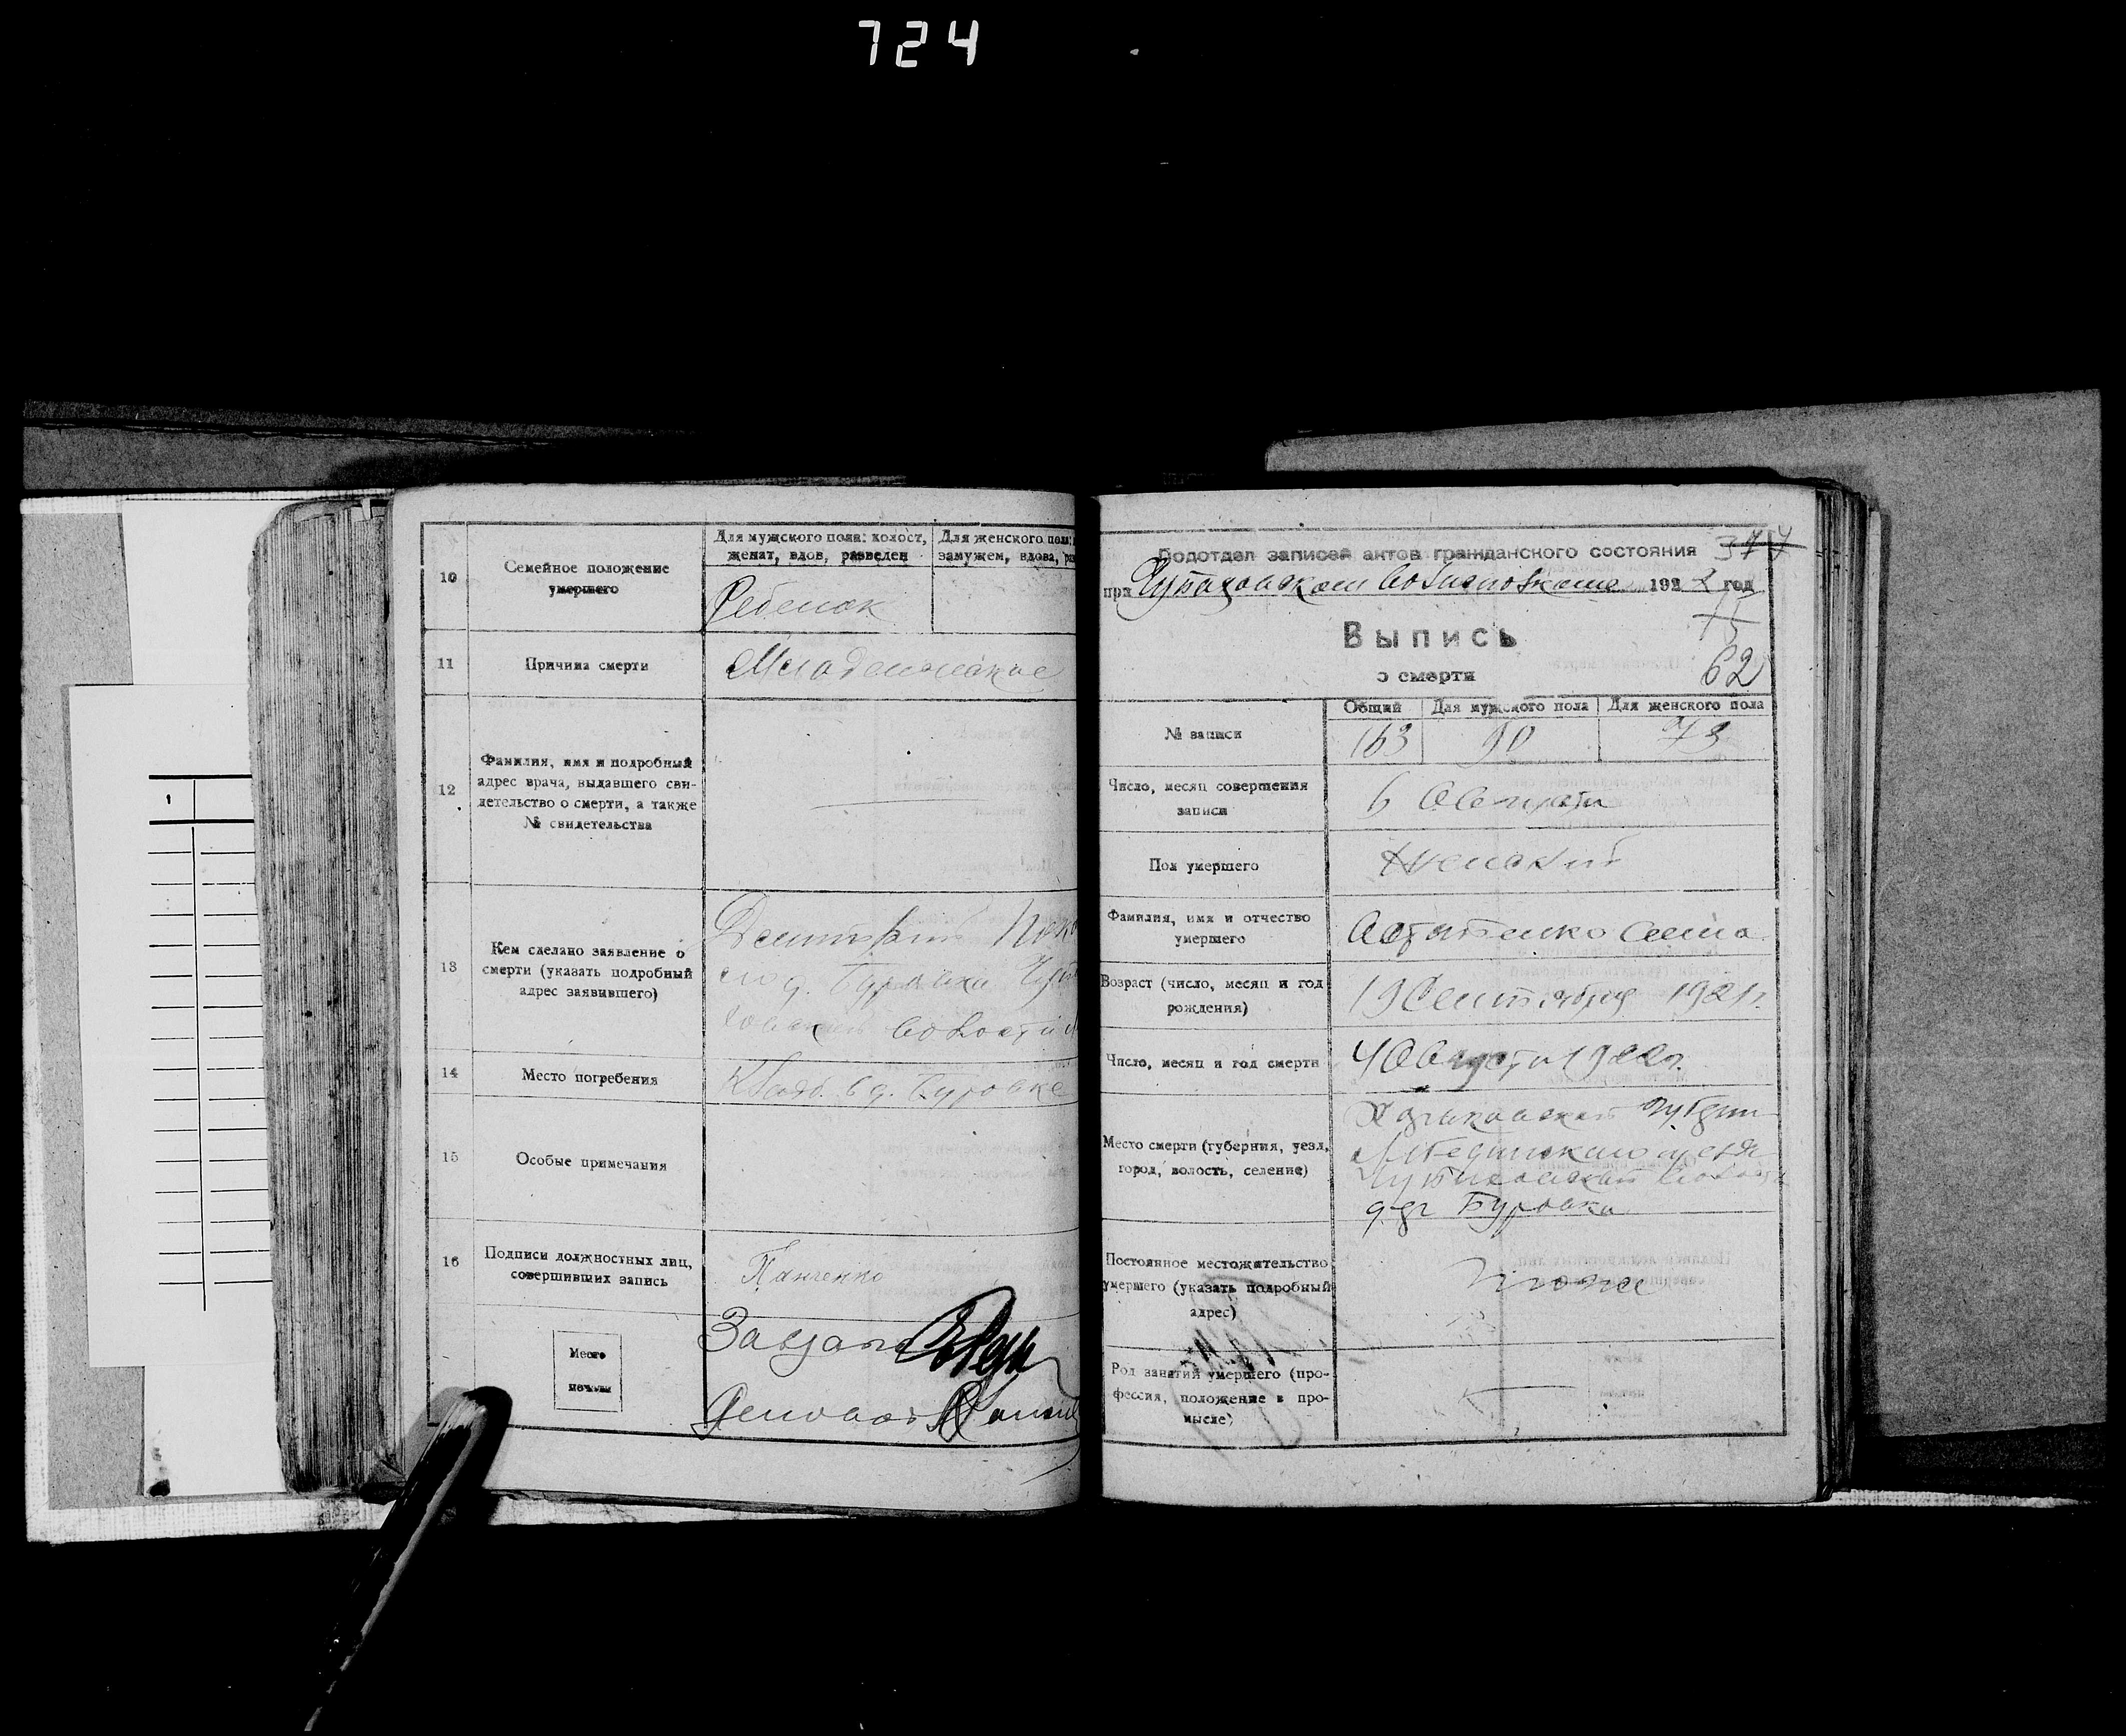 724
10
Семейное положение
умершего
Для мужского пола: холост,
женат, вдов, разведен
Для женского пола:
замужем, вдова,
Ребенок
11
Причина смерти
Младенческие
12
Фамилия, имя и подробный
адрес врача, выдавшего сви-
детельство о смерти, а также
№ свидетельства
13
Кем сделано заявление о
смерти (указать подробный
адрес заявившего)
Дмитрий
14
Место погребения
Кладб. в д. Буровке
15
Особые примечания
16
Подписи должностных лиц,
совершивших запись
Панченко
Место
печати
Подотдел записей актов гражданского состояния
377
при Чупаховском Волисполкоме 1922 год
Выпись
о смерти
62
№ записи
Общий
Для мужского пола
Для женского пола
163
90
73
Число, месяц совершения
записи
6 Августа
Пол умершего
Женский
Фамилия, имя и отчество
умершего
Возраст (число, месяц и год
рождения)
19 Сентября 1921 г.
Число, месяц и год смерти
4 Августа 1922 г.
Место смерти (губерния, уезд,
город, волость, селение)
Харьковская губерн
Чупаховская волость
дер Буровка
Постоянное местожительство
умершего (указать подробный
адрес)
Тоже
Род занятий умершего (про-
фессия, положение в про-
мысле)
1